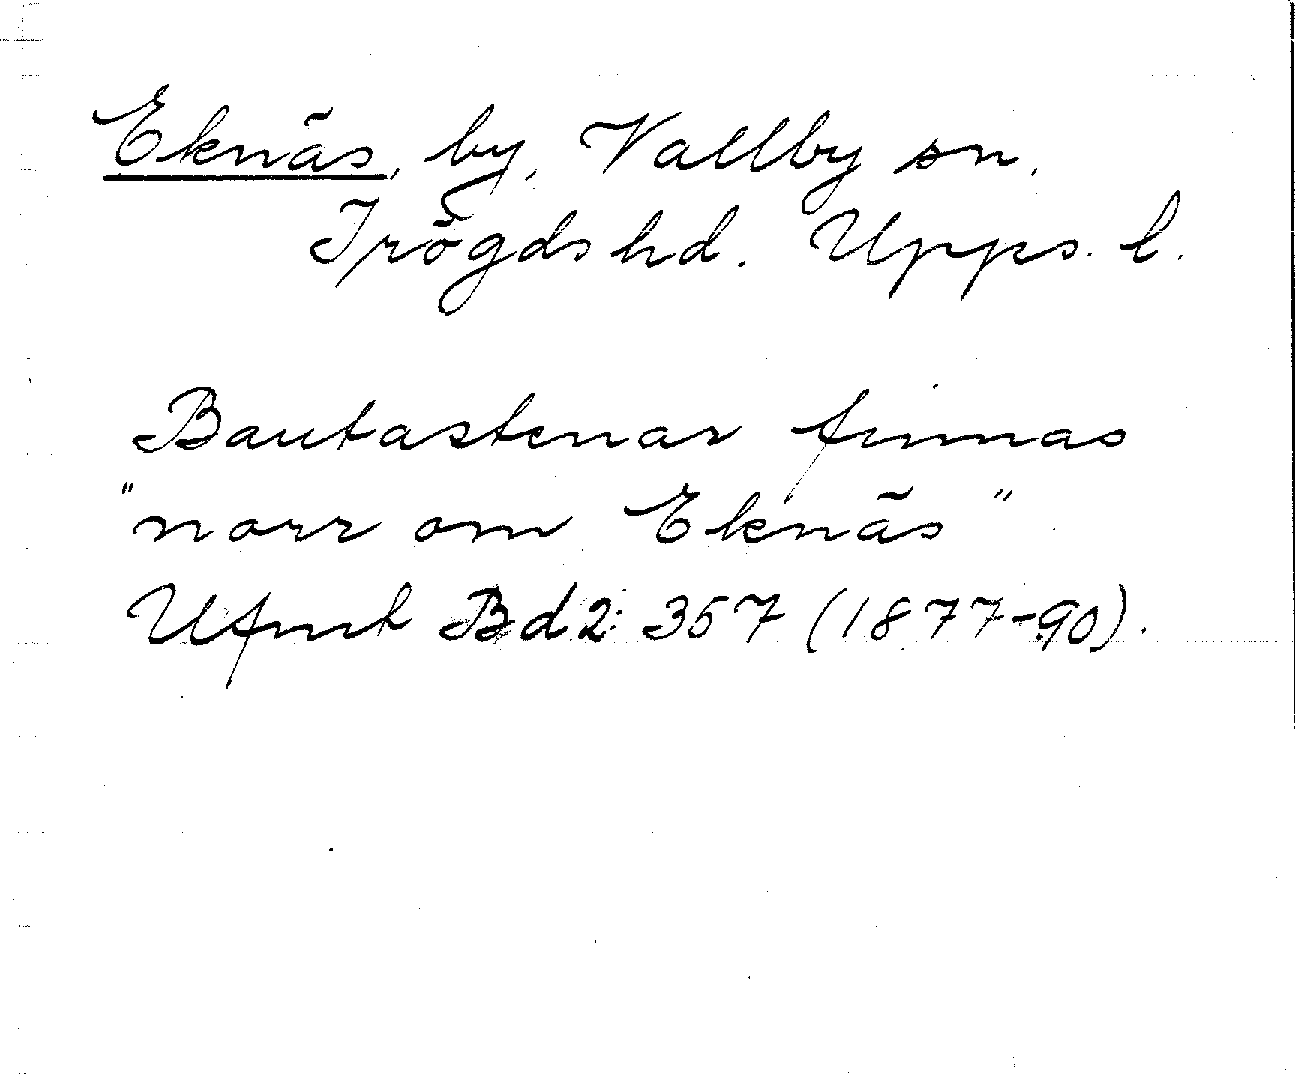 Eknäs, by, Vallby sn,
Trögds hd. Upps. l.
Bautastenar finnas
"norr om Eknäs"
Ufmt Bd 2: 357 (1877-90).